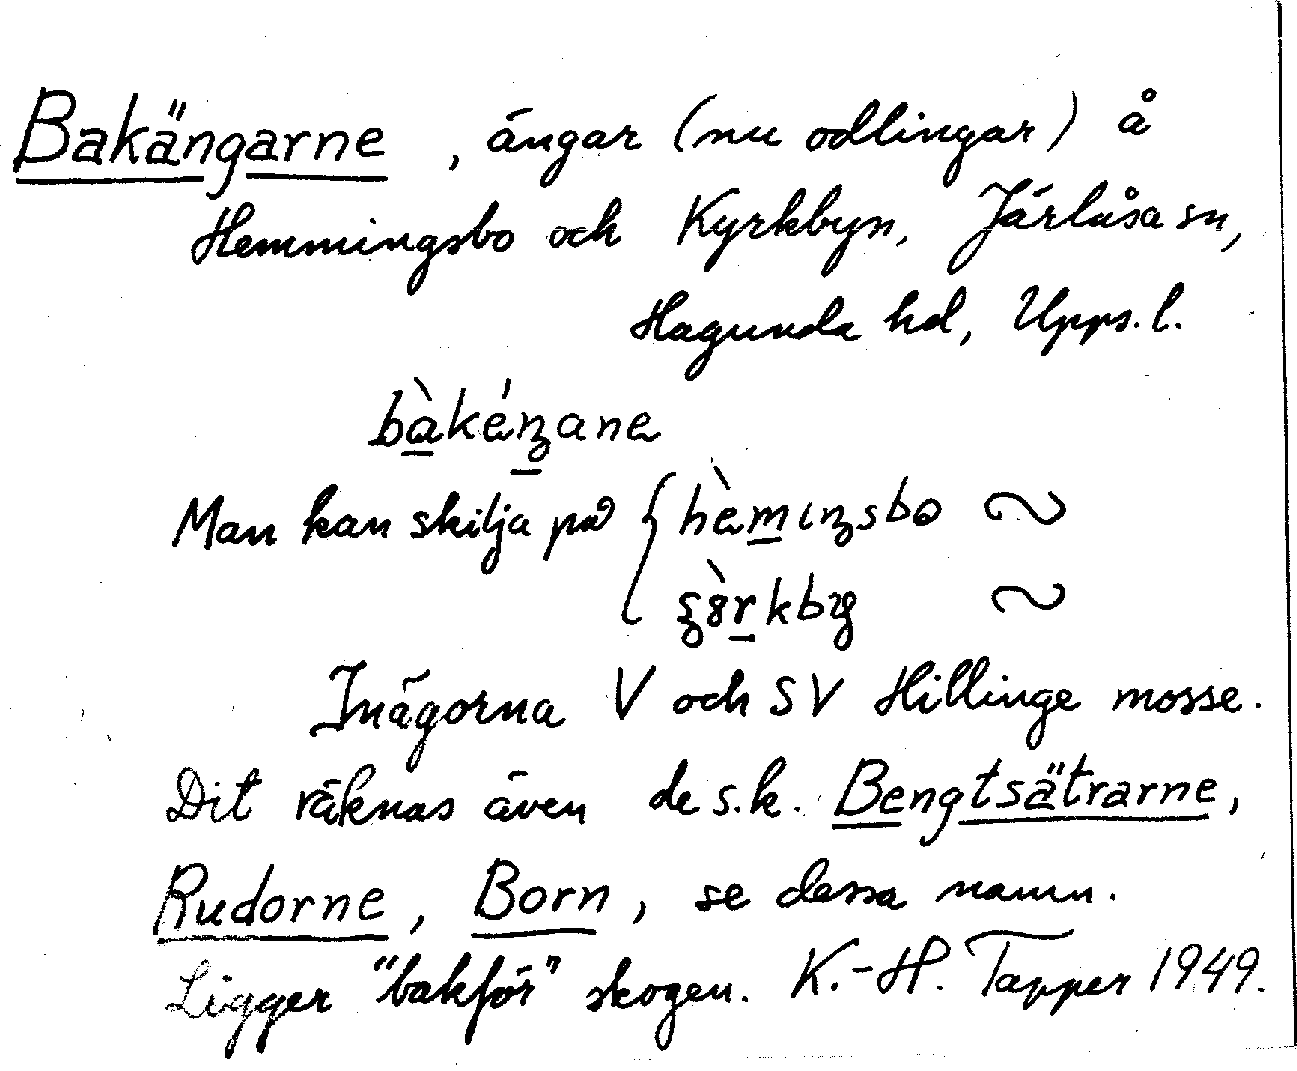 Bakängarne, ängar (nu odlingar) å
Hemmingsbo och Kyrkbyn, Järlåsa sn,
Hagunda hd, Upps. l.
bàkéŋane
Man kan skilja på { hèmıŋsbo ~
~
Inägorna V och SV Hillinge mosse.
Dit räknas även de s.k. Bengtsätrarne,
Rudorne, Born, se dessa namn.
Ligger "bakför" skogen. K.-H. Tapper 1949.